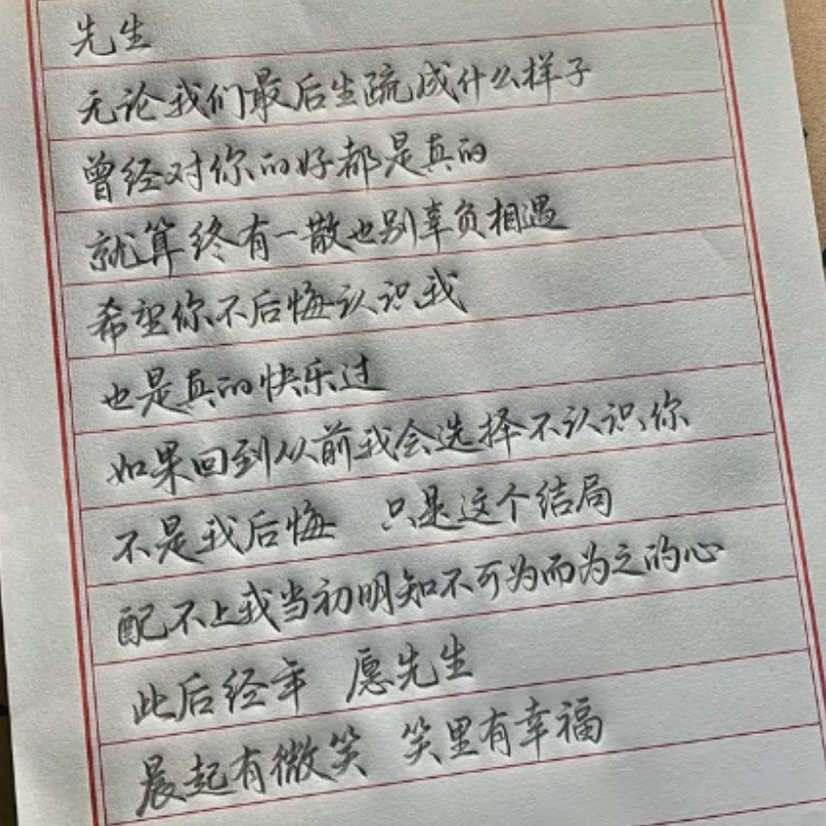 先生
无论我们最后生疏成什么样子
曾经对你的好都是真的
就算终有一散也别辜负相遇
希望你不后悔认识我
也是真的快乐过
如果回到从前我会选择不认识你
不是我后悔 只是这个结局
配不上我当初明知不可为而为之的心
此后经年 愿先生
晨起有微笑 笑里有幸福